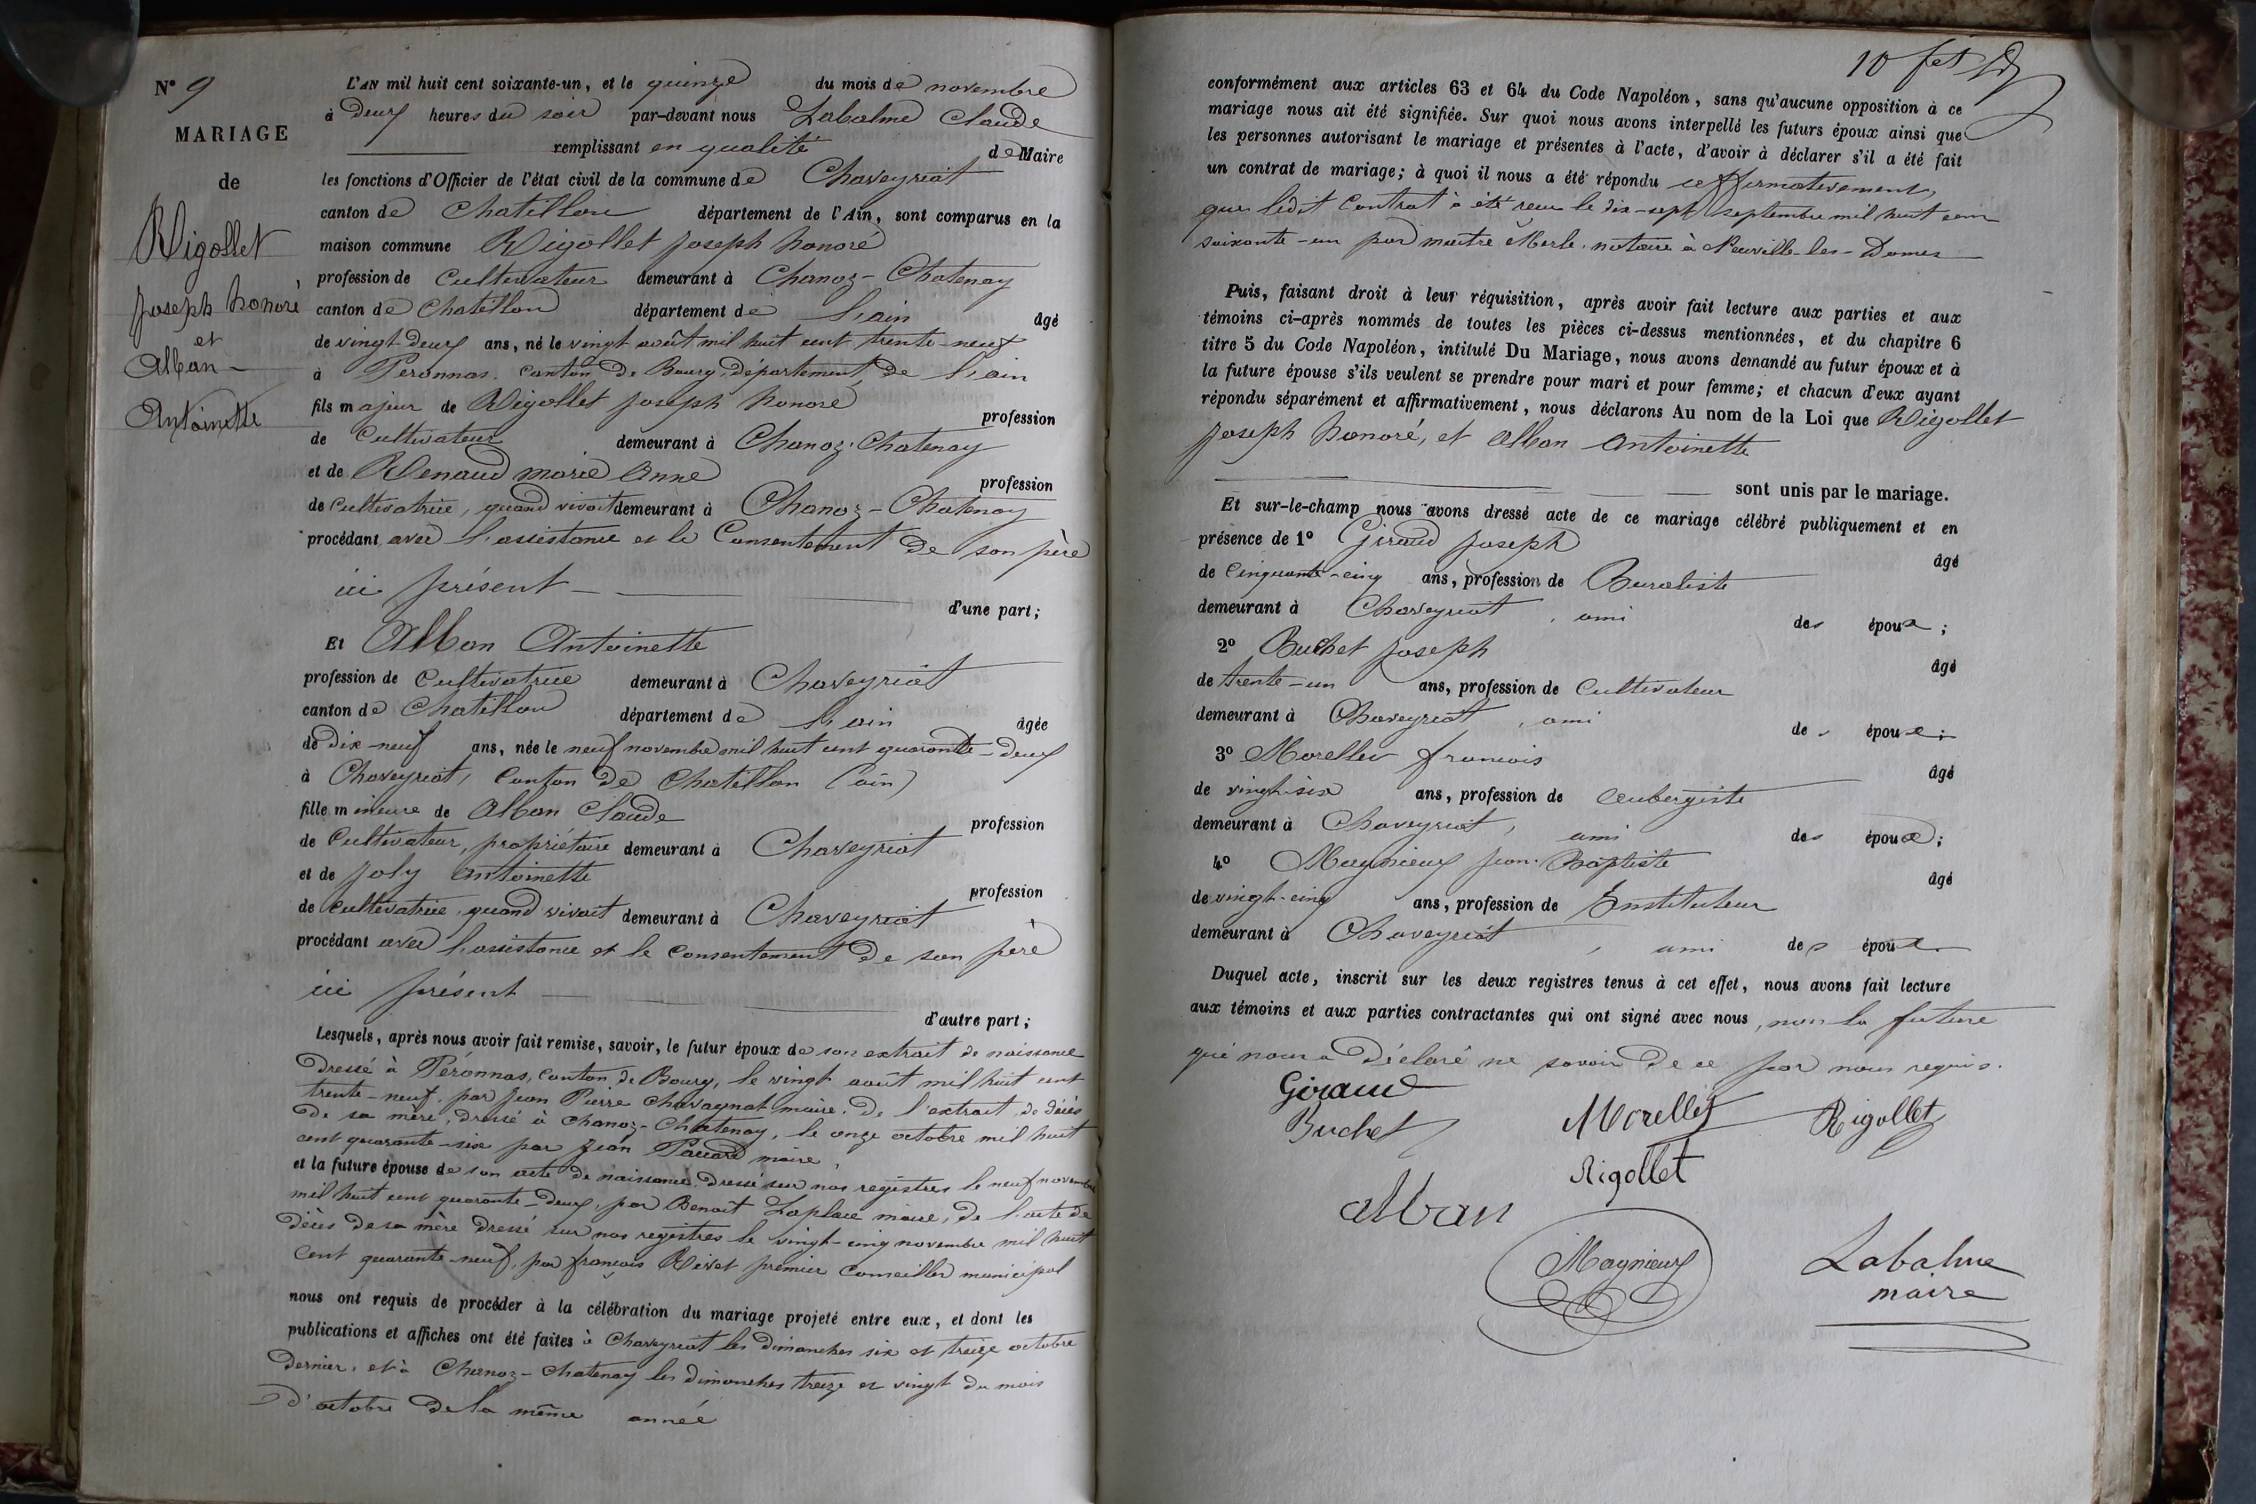 N° 9
MARIAGE
de
Rigollet
Joseph honoré
et
Alban
Antoinette
L'AN mil huit cent soixante-un, et le quinze du mois de novembre
à Deux heures du soir par-devant nous Labalme Claude
remplissant en qualité de Maire
les fonctions d'Officier de l'état civil de la commune de Chaveyriat
canton de Chatillon département de l'Ain, sont comparus en la
maison commune Rigollet Joseph honoré
profession de Cultivateur demeurant à Chanoz-Chatenay
canton de Chatillon département de l'ain âgé
de vingt Deux ans, né le vingt août mil huit cent trente-neuf
à Peronnas, canton de Bourg, département de l'ain
fils majeur de Rigollet Joseph honoré profession
de Cultivateur demeurant à Chanoz-Chatenay
et de Renaud marie Anne profession
de Cultivatrice, quand vivait demeurant à Chanoz-Chatenay
procédant avec l'assistance et le Consentement de son père
ici présent d'une part;
Et Alban Antoinette
profession de Cultivatrice demeurant à Chaveyriat
canton de Chatillon département de l'ain âgée
de Dix-neuf ans, née le neuf novembre mil huit cent quarante-deux
à Chaveyriat, canton de Chatillon (ain)
fille mineure de Alban Claude profession
de Cultivateur, propriétaire demeurant à Chaveyriat
et de Joly Antoinette profession
de Cultivatrice, quand vivait demeurant à Chaveyriat
procédant avec l'assistance et le consentement de son père
ici présent d'autre part;
Lesquels, après nous avoir fait remise, savoir, le futur époux de son extrait de naissance
Dressé à Péronnas, canton de Bourg, le vingt août mil huit cent
trente-neuf, par Jean Pierre Chavagnat maire. De l'extrait de décès
De sa mère, dressé à Chanoz-Chatenay, le onze octobre mil huit
cent quarante-six par Jean maire,
et la future épouse de son acte de naissance Dressé sur nos registres le neuf novembre
mil huit cent quarante-Deux, par Benoit Laplace maire, De l'acte de
Décès de sa mère Dressé sur nos registres le vingt-cinq novembre mil huit
Cent quarante-neuf, par françois Rivet premier Conseiller municipal
nous ont requis de procéder à la célébration du mariage projeté entre eux, et dont les
publications et affiches ont été faites à Chaveyriat les dimanches six et treize octobre
Dernier, et à Chanoz-Chatenay les dimanches treize et vingt du mois
D'octobre De la même année
10 fet
conformément aux articles 63 et 64 du Code Napoléon, sans qu'aucune opposition à ce
mariage nous ait été signifiée. Sur quoi nous avons interpellé les futurs époux ainsi que
les personnes autorisant le mariage et présentes à l'acte, d'avoir à déclarer s'il a été fait
un contrat de mariage; à quoi il nous a été répondu affirmativement,
que ledit Contrat à été reçu le dix-sept septembre mil huit cent
soixante-un par maître Merle, notaire à Neuville-les-Dames
Puis, faisant droit à leur réquisition, après avoir fait lecture aux parties et aux
témoins ci-après nommés de toutes les pièces ci-dessus mentionnées, et du chapitre 6
titre 5 du Code Napoléon, intitulé Du Mariage, nous avons demandé au futur époux et à
la future épouse s'ils veulent se prendre pour mari et pour femme; et chacun d'eux ayant
répondu séparément et affirmativement, nous déclarons Au nom de la Loi que Rigollet
Joseph honoré, et Alban Antoinette
sont unis par le mariage.
Et sur-le-champ nous avons dressé acte de ce mariage célébré publiquement et en
présence de 1° Giraud Joseph âgé
de Cinquante-cinq ans, profession de Buraliste
demeurant à Chaveyriat, ami des époux;
2° Buchet Joseph âgé
de trente-un ans, profession de Cultivateur
demeurant à Chaveyriat, ami des époux;
3° Morellet françois âgé
de vingt-six ans, profession de Aubergiste
demeurant à Chaveyriat, ami des époux;
4° Magnieux Jean-Baptiste âgé
de vingt-cinq ans, profession de Instituteur
demeurant à Chaveyriat, ami des époux
Duquel acte, inscrit sur les deux registres tenus à cet effet, nous avons fait lecture
aux témoins et aux parties contractantes qui ont signé avec nous, non la future
qui nous a Déclaré ne savoir De ce par nous requis.
Giraud
Buchet Morellet Rigollet
Rigollet
Alban
Magnieux
Labalme
maire